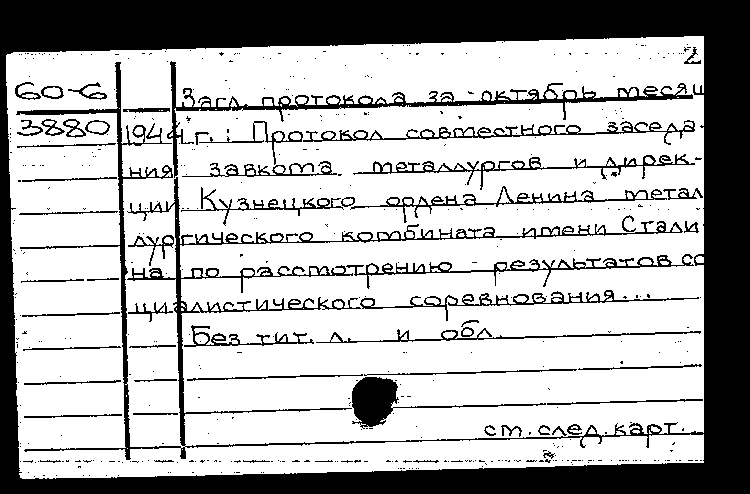 2
60-6 Загл. протокола за октябрь месяц
3880 1944 г.: Протокол совместного заседа-
ния завкома металлургов и дирек-
ции Кузнецкого ордена Ленина метал
лургического комбината имени Стали
на по рассмотрению результатов со
циалистического соревнования...
Без тит. л. и обл.
см. след. карт.